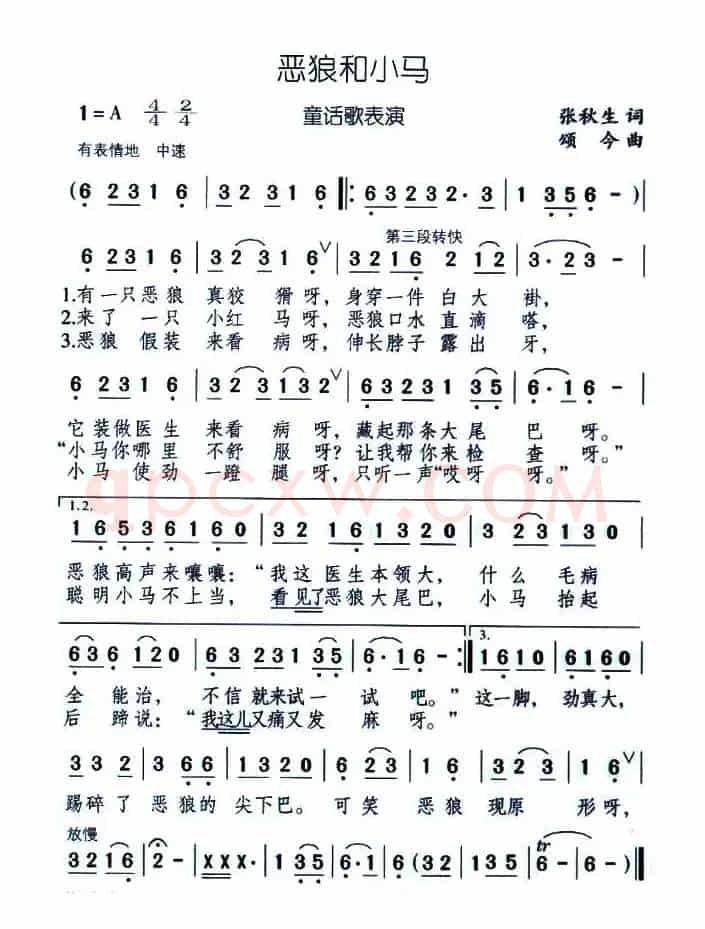 恶狼和小马
1=A 4/4 2/4 童话歌表演 张秋生 词
有表情地 中速 颂今 曲
(6 2 3 1 6 | 3 2 3 1 6 |: 6 3 2 3 2· 3 | 1 3 5 6 - )|
第三段转快
6 2 3 1 6 | 3 2 3 1 6 V | 3 2 1 6 2 1 2 | 3· 2 3 - |
1.有一只恶狼 真狡 猾呀，身穿一件 白大 褂，
2.来了 一只 小红 马呀，恶狼口水 直滴 嗒，
3.恶狼 假装 来看 病呀，伸长脖子 露出 牙，
6 2 3 1 6 | 3 2 3 1 3 2 V | 6 3 2 3 1 3 5 | 6· 1 6 - |
它装做医生 来看 病 呀，藏起那条大尾 巴 呀。
“小马你哪里 不舒 服呀？让我帮你来检 查 呀。”
小马 使劲 一蹬 腿呀，只听一声“哎呀 呀。”
qpcxw.COM
1.2.
1 6 5 3 6 1 6 0 | 3 2 1 6 1 3 2 0 | 3 2 3 1 3 0 |
恶狼高声来嚷嚷：“我这 医生本领大， 什么 毛病
聪明小马不上当， 看见了恶狼大尾巴， 小马 抬起
3.
6 3 6 1 2 0 | 6 3 2 3 1 3 5 | 6· 1 6 - :| 1 6 1 0 | 6 1 6 0 |
全 能治， 不信就来试一 试 吧。” 这一脚，劲真大，
后 蹄说：“我这儿又痛又发 麻 呀。”
3 3 2 | 3 2 1 6 | 2 2 3 | 1 3 2 0 | 6 2 3 | 1 6 | 3 2 3 | 1 6 V |
踢碎了 恶狼的 尖下巴。可笑 恶狼 现原 形呀，
放慢
3 2 1 6 | 2 - | X X X· | 1 3 5 | 6· 1 | 6 (3 2 | 1 3 5 | tr 6 - | 6 ) ||